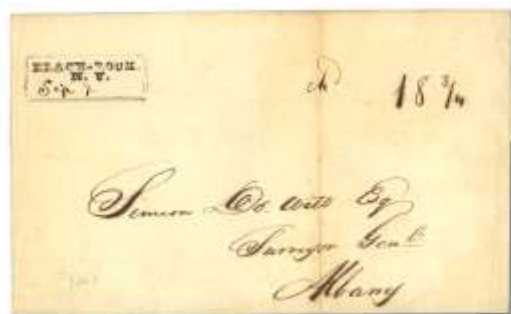 BLACK-ROCK
N. Y.
Sep 7
18 3/4
Simeon De Witt Esq
Surveyor Genl
Albany